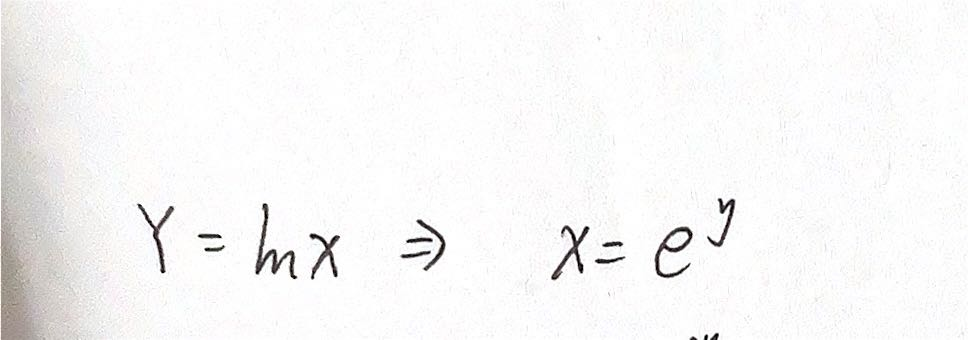 Y = ln x ⇒ x = e^y